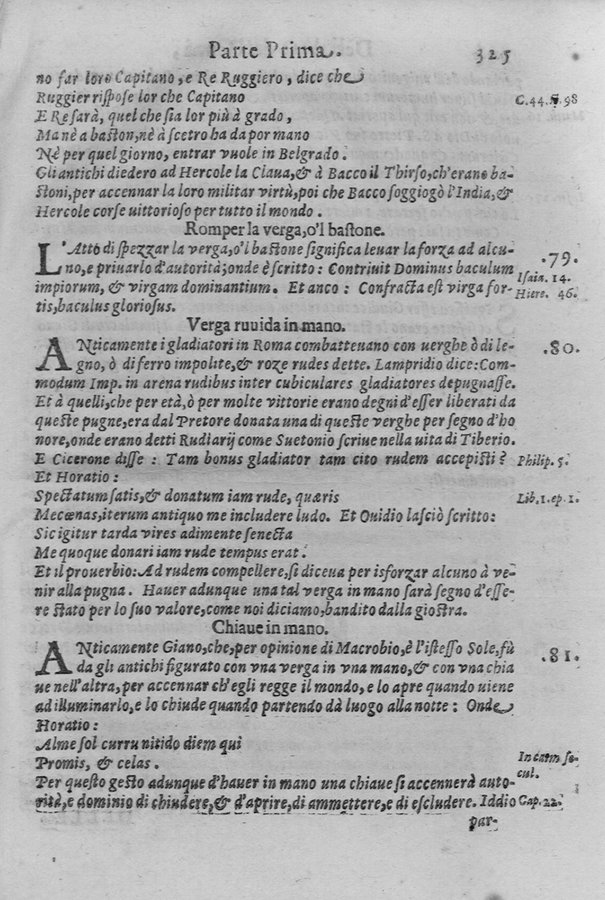 Parte Prima. 325
no far loro Capitano, e Re Ruggiero, dice che
Ruggier rispose lor che Capitano C.44.st.98
E Re sarà, quel che sia lor più à grado,
Ma nè a baston, nè à scetro ha da por mano
Nè per quel giorno, entrar vuole in Belgrado.
Gli antichi diedero ad Hercole la Claua, & à Bacco il Thirso, ch'erano ba-
stoni, per accennar la loro militar virtù, poi che Bacco soggiogò l'India, &
Hercole corse uittorioso per tutto il mondo.
Romper la verga, o'l bastone.
L'Atto di spezzar la verga, o'l bastone significa leuar la forza ad alcu- .79.
no, e priuarlo d'autorità; onde è scritto: Contriuit Dominus baculum Isaia. 14.
impiorum, & virgam dominantium. Et anco: Confracta est virga for- Hiere. 46.
tis, baculus gloriosus.
Verga ruuida in mano.
ANticamente i gladiatori in Roma combatteuano con uerghe ò di le- .80.
gno, ò di ferro impolite, & roze rudes dette. Lampridio dice: Com-
modum Imp. in arena rudibus inter cubiculares gladiatores depugnasse.
Et à quelli, che per età, ò per molte vittorie erano degni d'esser liberati da
queste pugne, era dal Pretore donata una di queste verghe per segno d'ho
nore, onde erano detti Rudiarij come Suetonio scriue nella uita di Tiberio.
E Cicerone disse: Tam bonus gladiator tam cito rudem accepisti? Philip. 5.
Et Horatio:
Spectatum satis, & donatum iam rude, quæris Lib.1.ep.1.
Mecœnas, iterum antiquo me includere ludo. Et Ouidio lasciò scritto:
Sic igitur tarda vires adimente senecta
Me quoque donari iam rude tempus erat.
Et il prouerbio: Ad rudem compellere, si diceua per isforzar alcuno à ve-
nir alla pugna. Hauer adunque una tal verga in mano sarà segno d'esse-
re stato per lo suo valore, come noi diciamo, bandito dalla giostra.
Chiaue in mano.
ANticamente Giano, che, per opinione di Macrobio, è l'istesso Sole, fù .81.
da gli antichi figurato con vna verga in vna mano, & con vna chia
ue nell'altra, per accennar ch'egli regge il mondo, e lo apre quando uiene
ad illuminarlo, e lo chiude quando partendo dà luogo alla notte: Onde
Horatio:
Alme sol curru nitido diem qui
Promis, & celas. In carm se-
cul.
Per questo gesto adunque d'hauer in mano una chiaue si accennerà auto-
rità, e dominio di chiudere, & d'aprire, di ammettere, e di escludere. Iddio Cap. 22.
par-